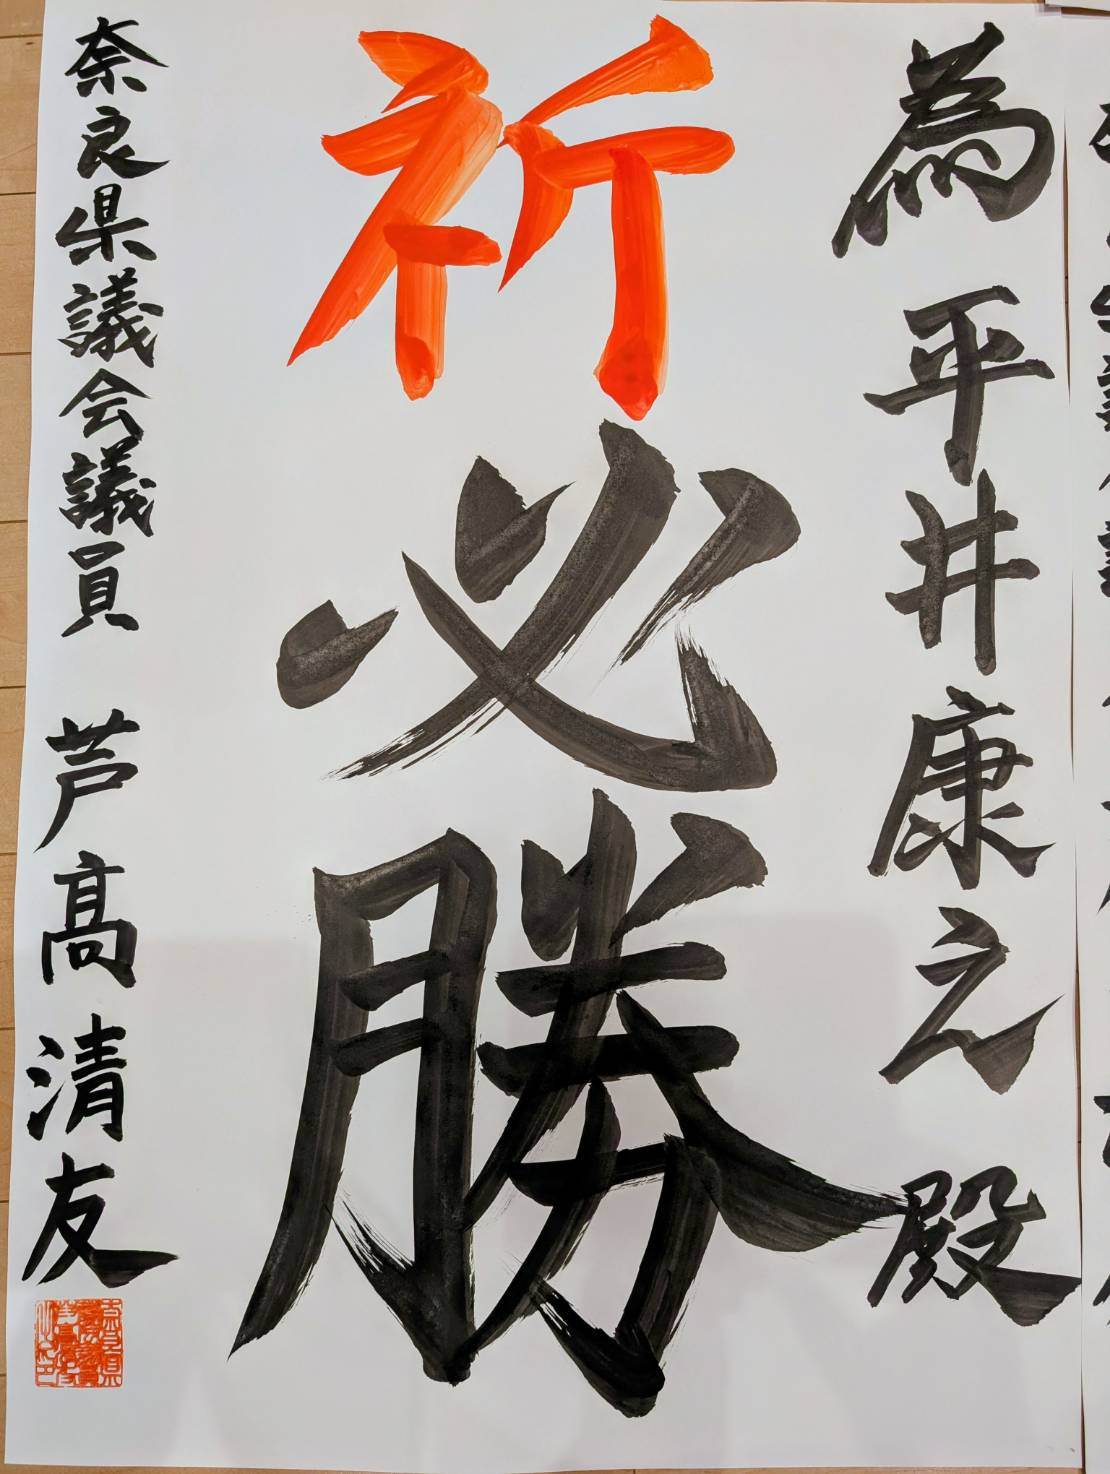 為 平井康之 殿
祈必勝
奈良県議会議員 芦髙清友